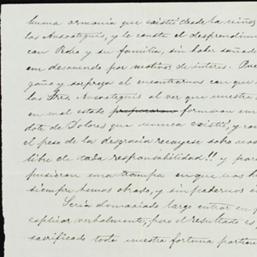 buena armonía que existió desde la niñez
las Anacoreguis, y le consta el desprendim
con Pedro y su familia, sin haber soñado
en desacuerdo por motivos de interes. Pue
gaño y sorpresa al encontrarnos con que
las Sras. al ver que nuestra
en mal estado formaron un
dote de Dolores que nunca existió, y con
el peso de la desgracia recayese sobre noso
libre de esa responsabilidad!! y para
pusieron una trampa en que nos h
siempre hemos obrado, y sin podernos i
Seria demasiado largo entrar en p
esplicar verbalmente; pero el resultado es
sacrificado toda nuestra fortuna particu